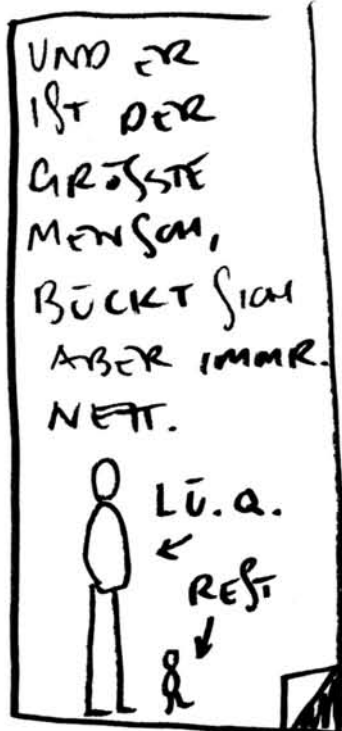 UND ER
IST DER
GRÖSSTE
MENSCH,
BÜCKT SICH
ABER IMMR.
NETT.
LÜ.Q.
REST